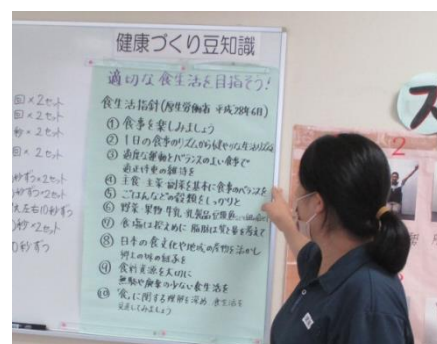 健康づくり豆知識
適切な食生活を目指そう!
食生活指針(厚生労働省 平成28年6月)
① 食事を楽しみましょう
② 1日の食事のリズムから健やかな生活リズムを
③ 適度な運動とバランスのよい食事で
適正体重の維持を
④ 主食・主菜・副菜を基本に食事のバランスを
⑤ ごはんなどの穀類をしっかりと
⑥ 野菜・果物・牛乳・乳製品
⑦ 食塩は控えめに 脂肪は質と量を考えて
⑧ 日本の食文化や地域の産物を活かし
郷土の味の継承を
⑨ 食料資源を大切に
無駄や廃棄の少ない食生活を
⑩ 「食」に関する理解を深め 食生活を
見直してみましょう
回×2セット
回×2セット
秒×2セット
回×2セット
秒ずつ×2セット
左右10秒ずつ
秒×2セット
秒ずつ
ス
2